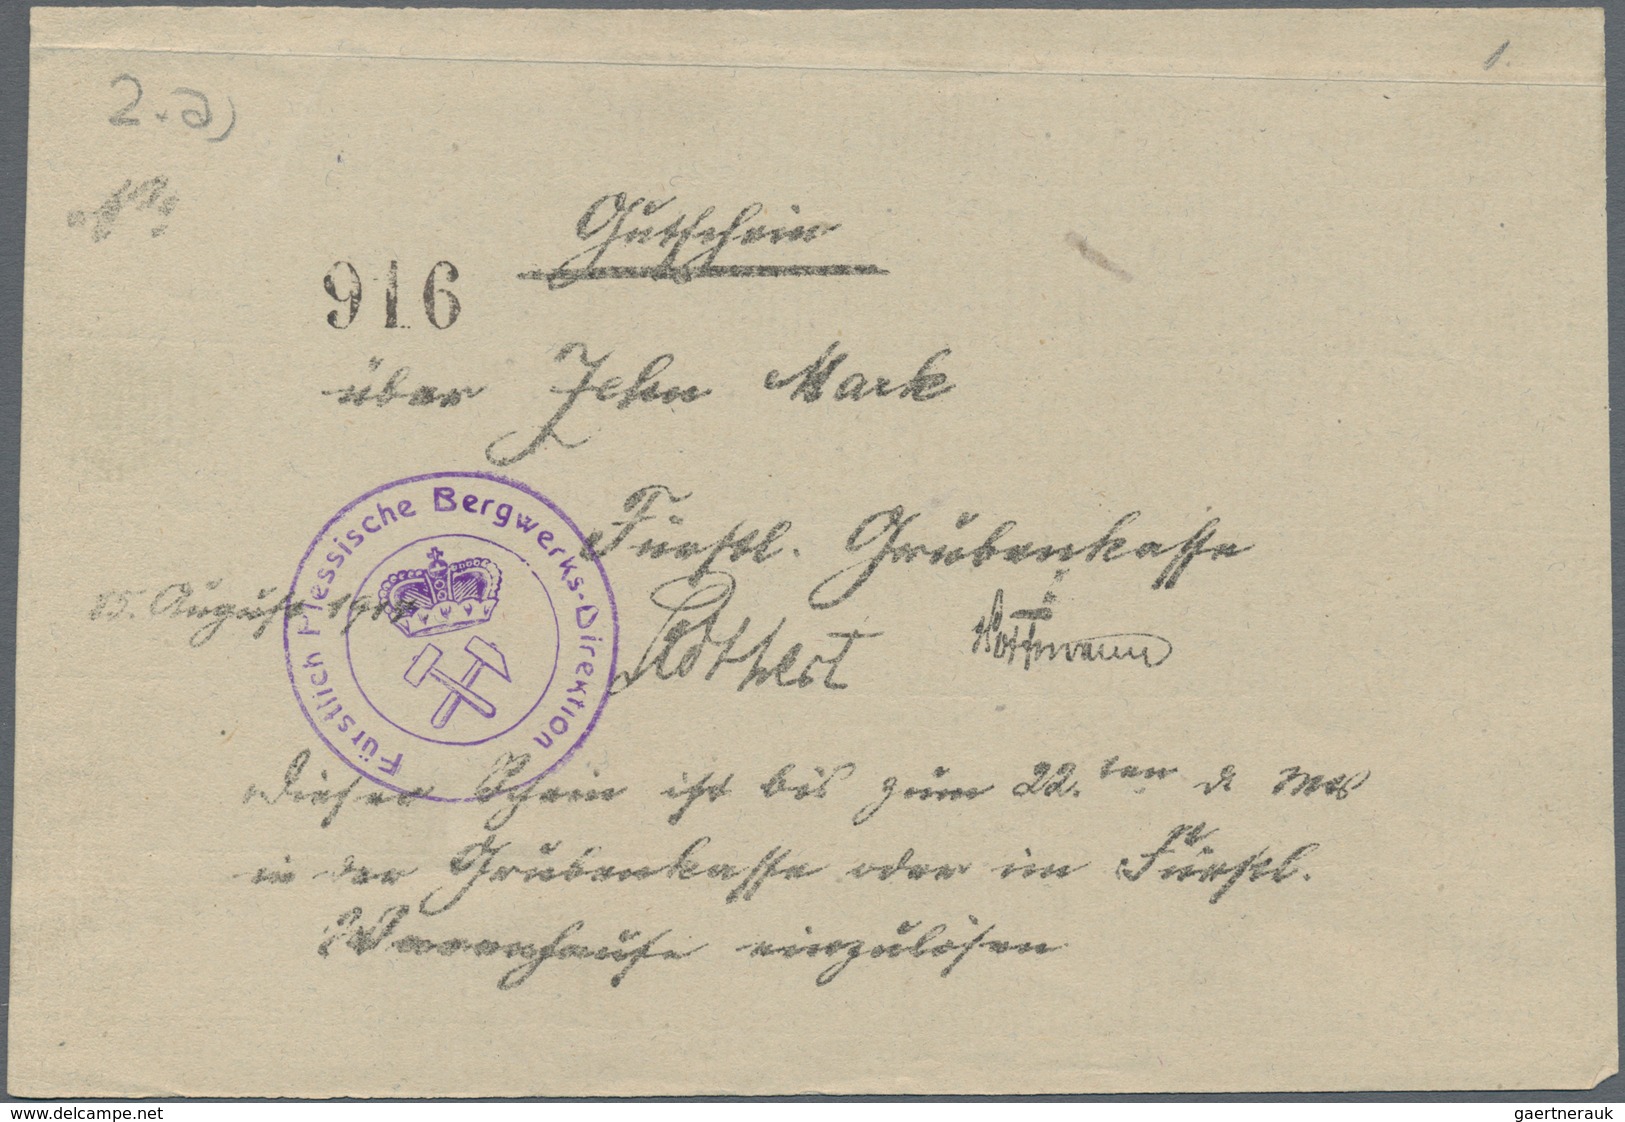 1.
2.a)
Gutschein
916
über Zehn Mark
Fürstl. Grubenkasse
15. August
Hoffmann
Fürstlich Plessische Bergwerks-Direktion
Dieser Schein ist bis zum 22.ten d. Mts
in der Grubenkasse oder im Fürstl.
Warenhause einzulösen
www.delcampe.net
gaertnerauk